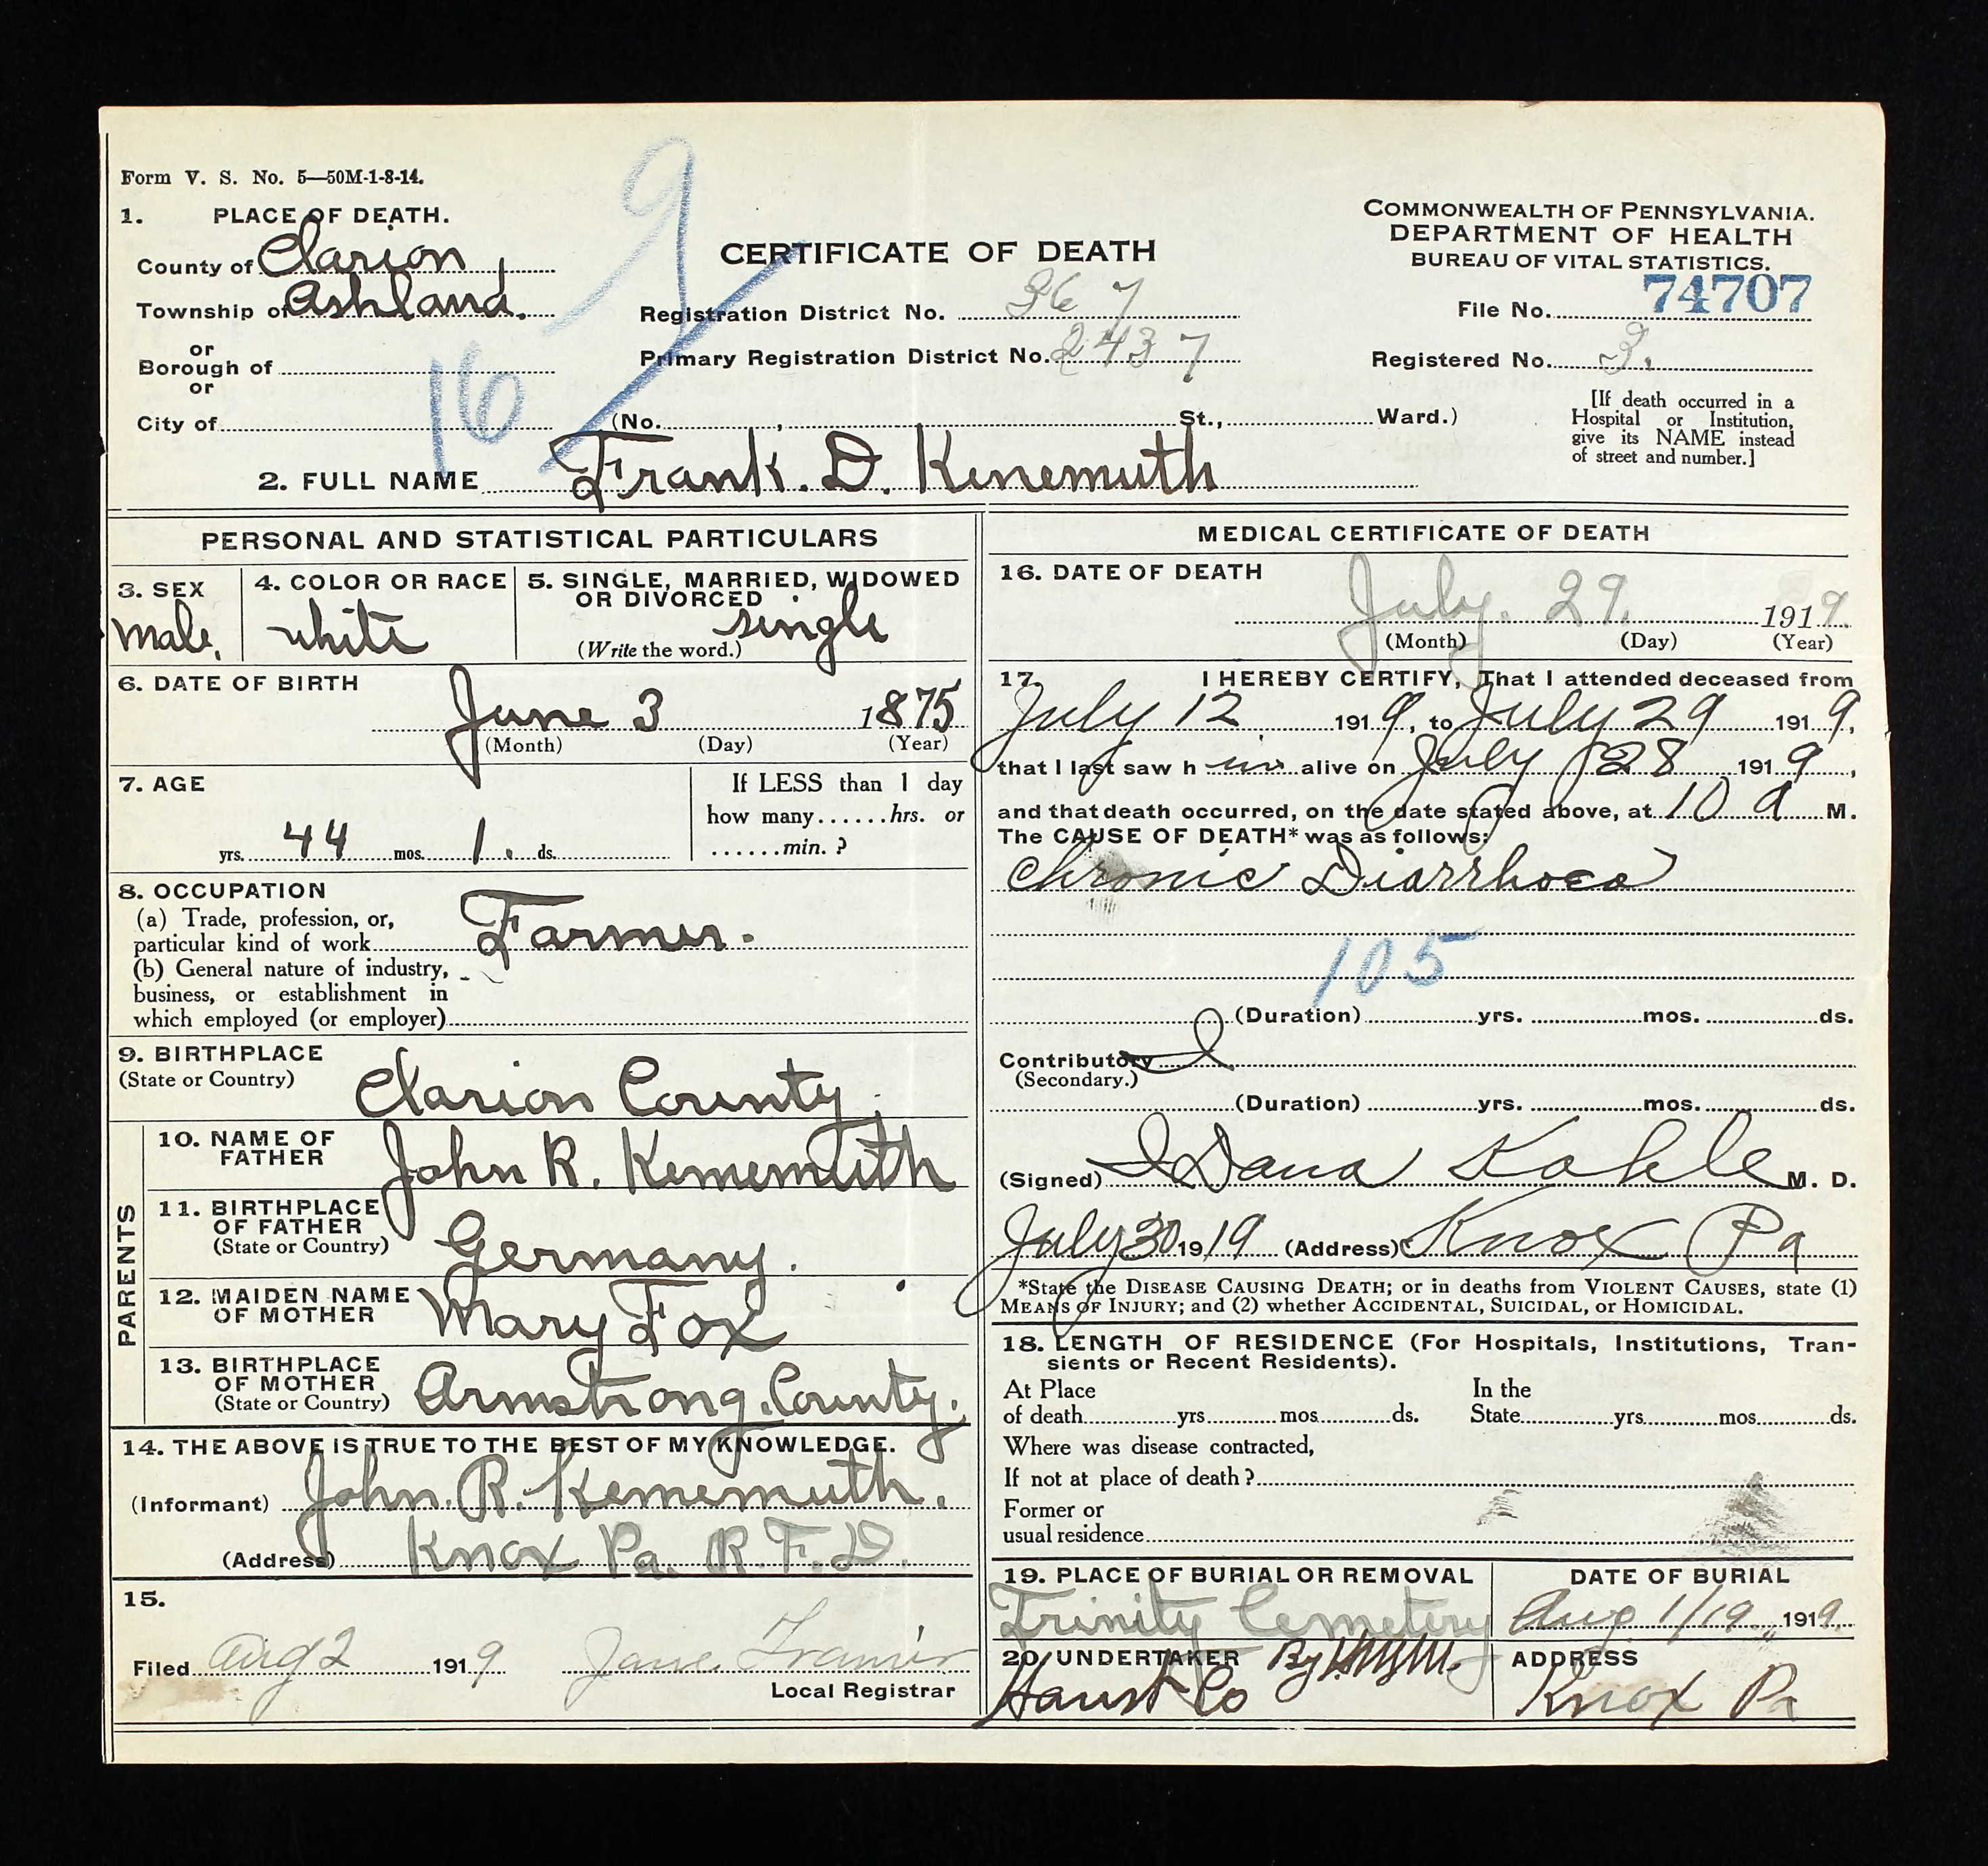 Form V. S. No. 5—50M-1-8-14.
1. PLACE OF DEATH.
County of Clarion
Township of Ashland.
or
Borough of
or
City of
9
16
CERTIFICATE OF DEATH
Registration District No. 367
Primary Registration District No. 2437
(No. , St., Ward.)
COMMONWEALTH OF PENNSYLVANIA.
DEPARTMENT OF HEALTH
BUREAU OF VITAL STATISTICS.
File No. 74707
Registered No. 9.
[If death occurred in a
Hospital or Institution,
give its NAME instead
of street and number.]
2. FULL NAME Frank. D. Kinemuth
PERSONAL AND STATISTICAL PARTICULARS
3. SEX
Male.
4. COLOR OR RACE
white
5. SINGLE, MARRIED, WIDOWED
OR DIVORCED
(Write the word.) single
6. DATE OF BIRTH
June 3 1875
(Month) (Day) (Year)
7. AGE
44 yrs. 1 mos. ds.
If LESS than 1 day
how many......hrs. or
......min. ?
8. OCCUPATION
(a) Trade, profession, or,
particular kind of work Farmer.
(b) General nature of industry,
business, or establishment in
which employed (or employer)
9. BIRTHPLACE
(State or Country) Clarion County.
PARENTS
10. NAME OF
FATHER John R. Kememuth
11. BIRTHPLACE
OF FATHER
(State or Country) Germany.
12. MAIDEN NAME
OF MOTHER Mary Fox
13. BIRTHPLACE
OF MOTHER
(State or Country) Armstrong County.
14. THE ABOVE IS TRUE TO THE BEST OF MY KNOWLEDGE.
(Informant) John. R. Kememuth.
(Address) Knox Pa. R.F.D.
15.
Filed Aug 2 1919 Jane
Local Registrar
MEDICAL CERTIFICATE OF DEATH
16. DATE OF DEATH
July. 29. 1919.
(Month) (Day) (Year)
17. I HEREBY CERTIFY, That I attended deceased from
July 12 1919, to July 29 1919,
that I last saw him alive on July 28 1919,
and that death occurred, on the date stated above, at 10 a M.
The CAUSE OF DEATH* was as follows:
Chronic Diarrhoea
105
(Duration) yrs. mos. ds.
Contributory
(Secondary.)
(Duration) yrs. mos. ds.
(Signed) I Dana Kahle M. D.
July 30 1919 (Address) Knox Pa
*State the DISEASE CAUSING DEATH; or in deaths from VIOLENT CAUSES, state (1)
MEANS OF INJURY; and (2) whether ACCIDENTAL, SUICIDAL, or HOMICIDAL.
18. LENGTH OF RESIDENCE (For Hospitals, Institutions, Tran-
sients or Recent Residents).
At Place
of death yrs mos ds.
In the
State yrs mos ds.
Where was disease contracted,
If not at place of death?
Former or
usual residence
19. PLACE OF BURIAL OR REMOVAL
Trinity Cemetery
DATE OF BURIAL
Aug. 1/19 1919.
20. UNDERTAKER By
Haust Co
ADDRESS
Knox Pa